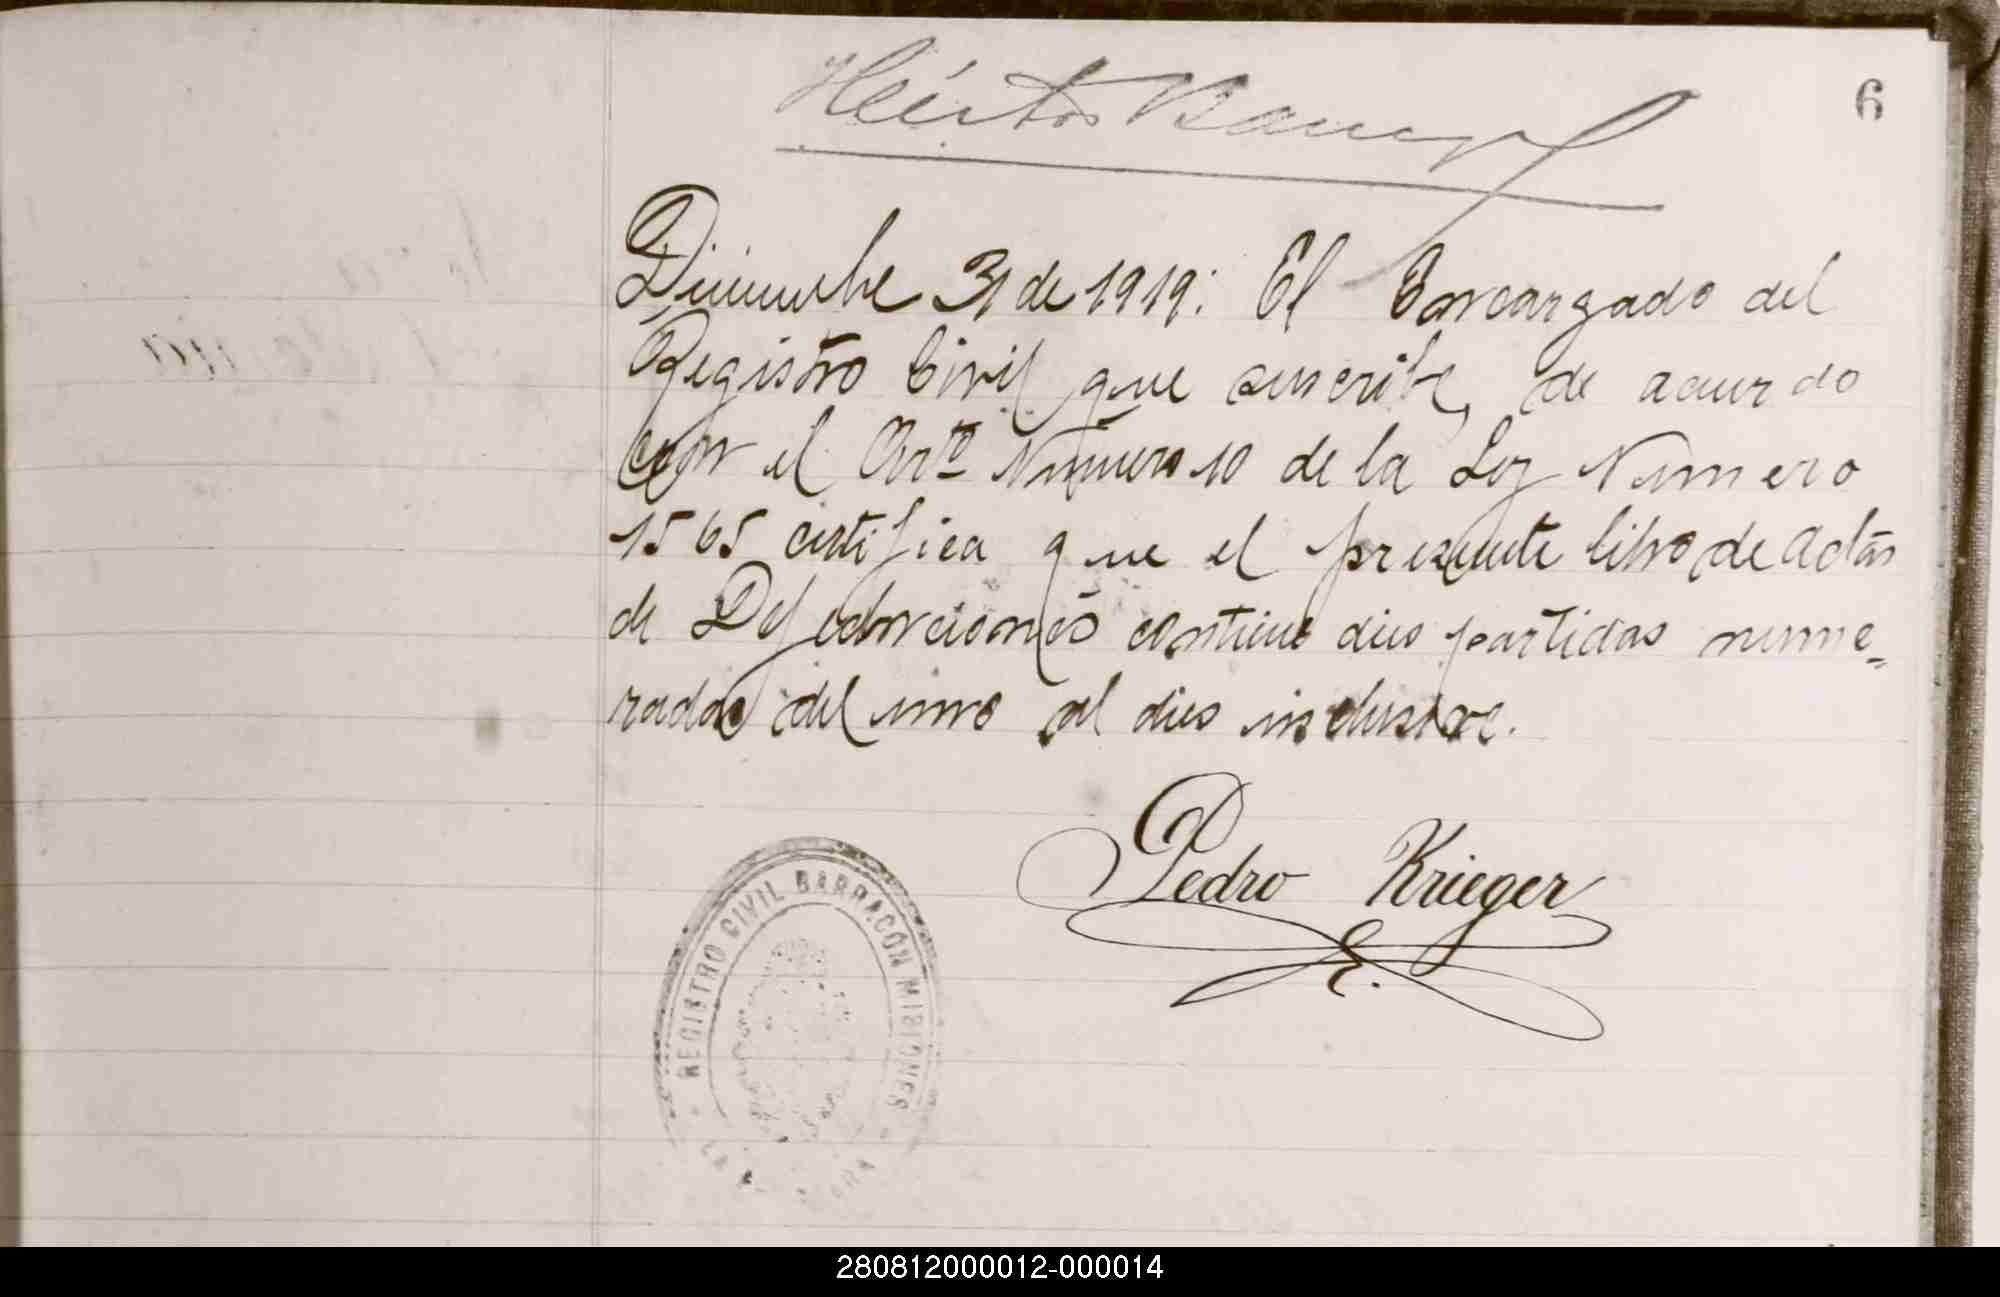 6
Héctor
Diciembre 31 de 1919: El Encargado del
Registro Civil que suscribe, de acuerdo
con el Arto Número 10 de la Ley Número
1565 certifica que el presente libro de actas
de Defunciones contiene dies partidas nume=
radas del uno al dies inclusive.
Pedro Krieger
E.
REGISTRO CIVIL BARRACÓN MISIONES
280812000012-000014